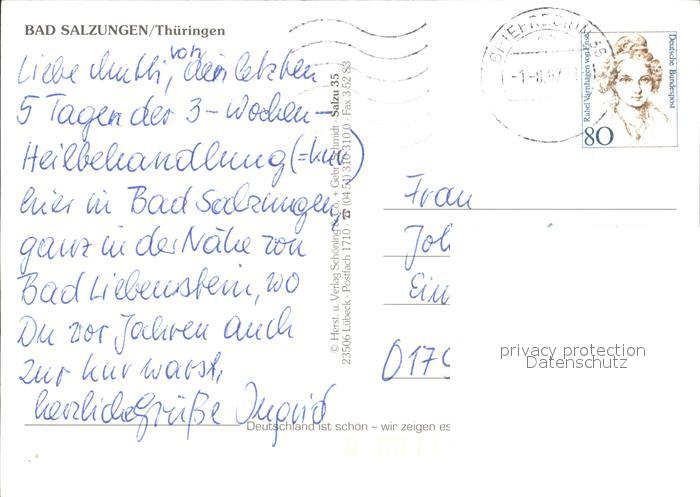 BAD SALZUNGEN/Thüringen
Liebe Mutti, von den letzten
5 Tagen der 3-Wochen-
Heilbehandlung (=Kur)
hier in Bad Salzungen,
ganz in der Nähe von
Bad Liebenstein, wo
Du vor Jahren auch
zur Kur warst,
herzliche Grüße Ingrid
© Herst. u. Verlag Schöning & Co. + Gebr. Schmidt · Salzu 35
23506 Lübeck · Postfach 1710 · ☎ (04 51) 310 310 0 · Fax 3 52 83
Deutschland ist schön – wir zeigen es
BRIEFREGION
80
Rahel Varnhagen von Ense
Deutsche Bundespost
Frau
Joh
Ein
017
privacy protection
Datenschutz